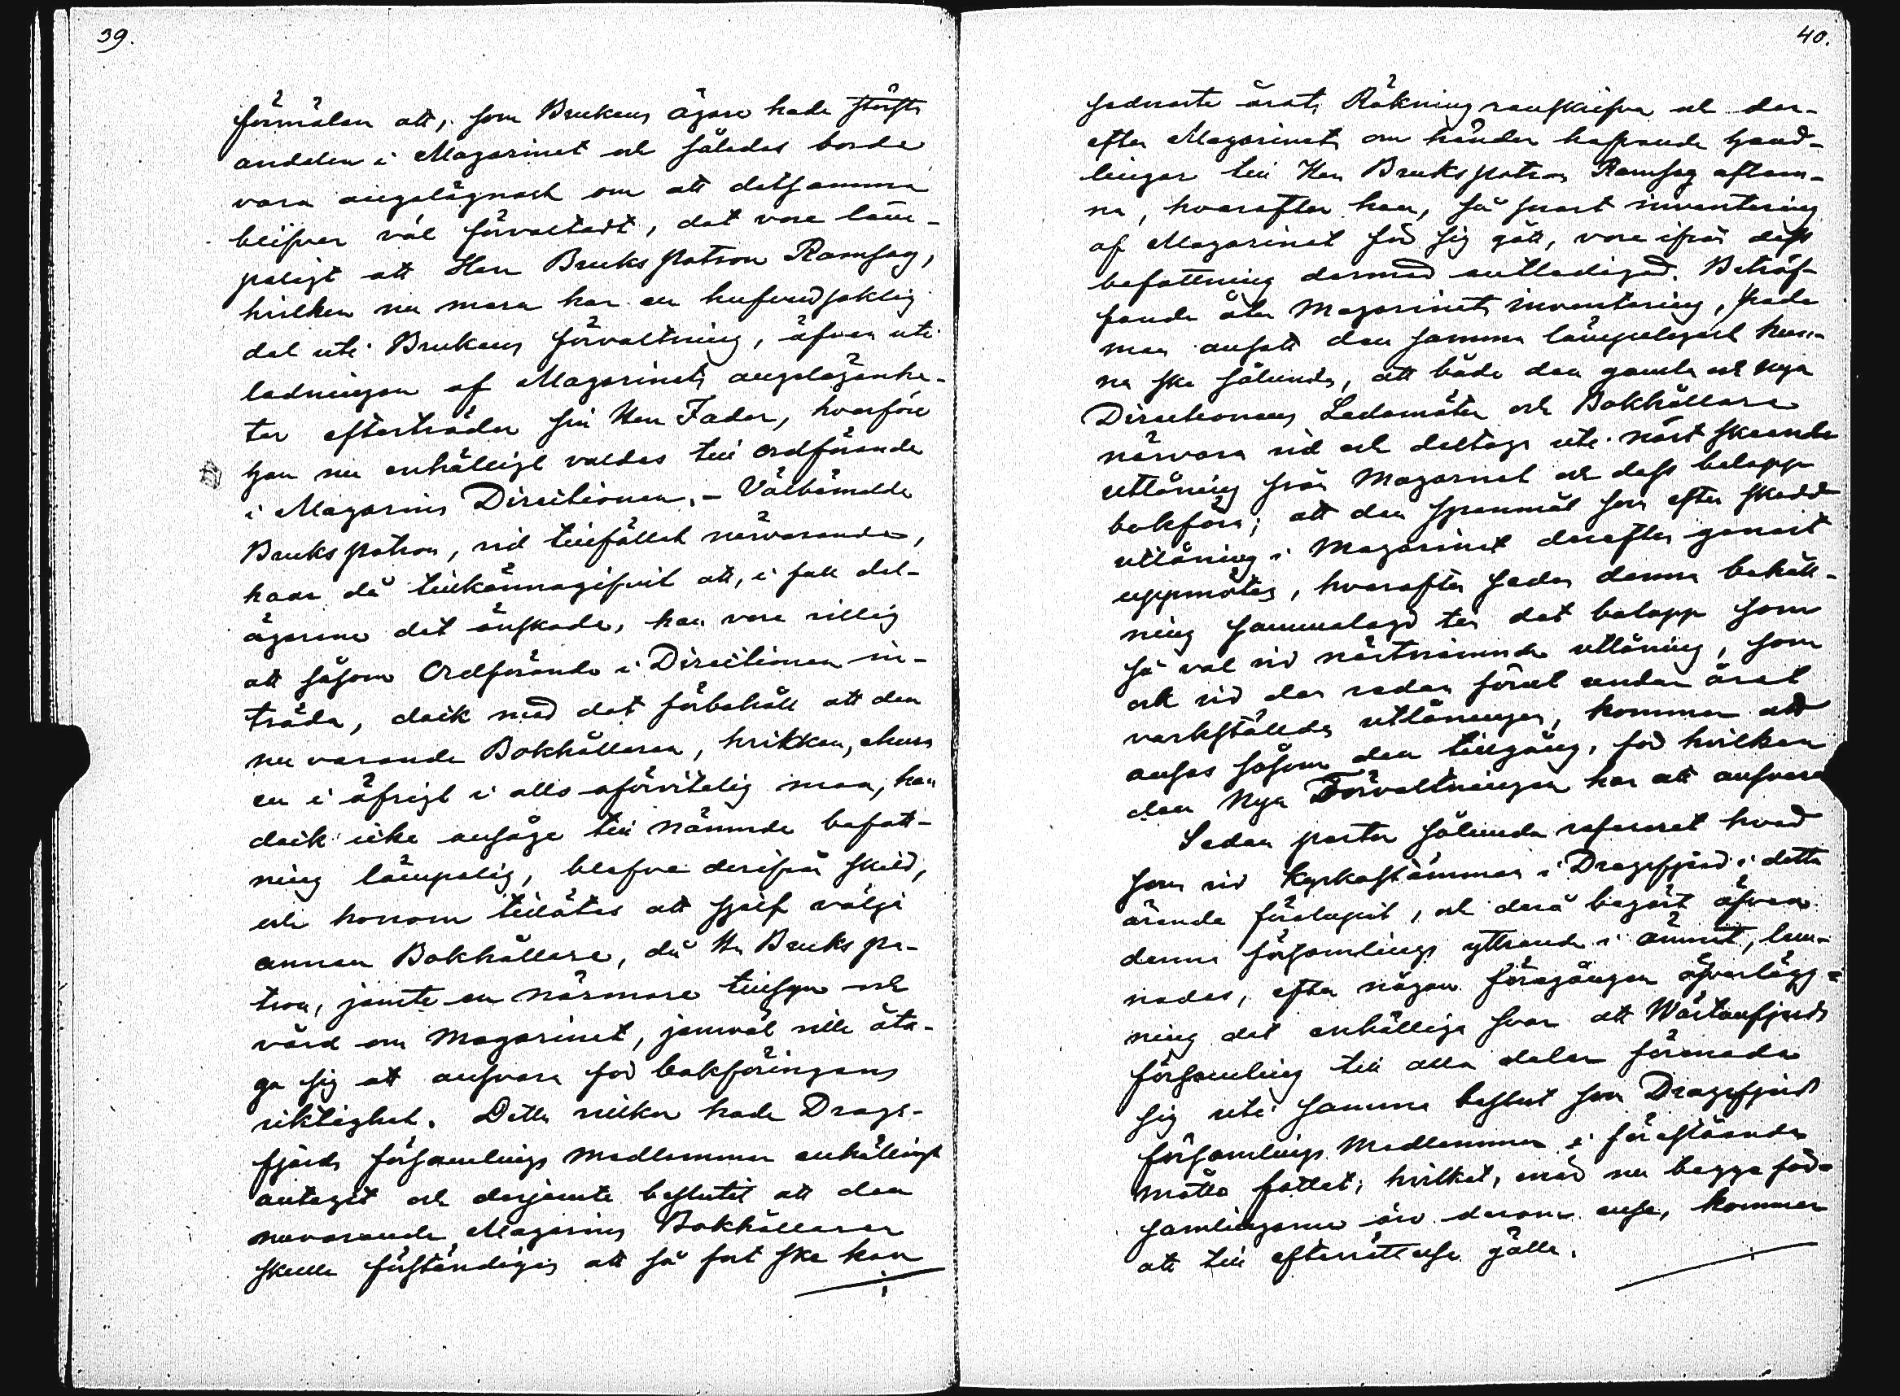 39.
förmälen att, som Brukens ägare hade största
andelen i Magasinet och således borde
vara angelägnast om att detsamma
blifver väl förvaltadt, det vore läm-
peligt att Herr Bruks Patron Ramsay,
hvilken nu mera har en hufvudsaklig
del uti Brukens förvaltning, äfven uti
ledningen af Magasinets angelägenhe-
ter efterträder sin Herr Fader, hvarföre
han nu enhälligt valdes till ordförande
i Magasins Directionen. – Välbemälde
Bruks Patron, vid tillfället närvarande,
hade då tillkännagifvit att, i fall del-
ägarene det önskade, han vore villig
att såsom Ordförande i Directionen in-
träda, dock med det förbehåll att den
nu varande Bokhållaren, hvilken, ehuru
en i öfrigt i allo oförvitelig man, han
dock icke ansåge till nämnde befatt-
ning lämpelig, blefve derifrån skild,
och honom tillåtas att sjelf välja
annan Bokhållare, då Hr Bruks pa-
tron, jemte en närmare tillsyn och
vård om Magasinet, jemväl ville åta-
ga sig att ansvara för bokföringens
riktighet. Detta vilkor hade Drags-
fjärds församlings medlemmar enhälligt
antagit och derjemte beslutit att den
nuvarande Magasins Bokhållaren
skulle förständigas att så fort ske kan
40.
sednaste årets Räkning renskrifva och der-
efter Magasinets om händer hafvande Hand-
lingar till Herr Bruks patron Ramsay aflem-
na, hvarefter han, så snart inventering
af Magasinet för sig gått, vore ifrån dess
befattning dermed entledigad. Beträf-
fande åter Magasinets inventering, hade
man ansett den samma lämpeligast kun-
na ske sålunda, att både den gamla och nya
Directionens Ledamöter och Bokhållare
närvara vid och deltaga uti näst skeende
utlåning från Magasinet och dess belopp
bokföra; att den spannmål som efter skedd
utlåning i Magasinet derefter genast
uppmätes, hvarefter sedan denna behåll-
ning sammanlagd ter det belopp som
så väl vid nästnämnde utlåning, som
ock vid den redan förut under året
verkställde utlåningen, kommer att
anses såsom den tillgång, för hvilken
den Nya Förvaltningen har att ansvara
Sedan pastor sålunda refererat hvad
som vid Kyrkostämman i Dragsfjärd i detta
ärende förelupit, och derå begärt äfven
denna församlings yttrande i ämnet, lem-
nades, efter någon föregången öfverlägg-
ning det enhälliga svar att Wästanfjärds
församling till alla delar förenade
sig uti samma beslut som Dragsfjärds
församlings Medlemmar i förestående
måtto fattat; hvilket, med nu begge för-
samlingarne äro derom ense, kommer
att till efterrättelse gälla.